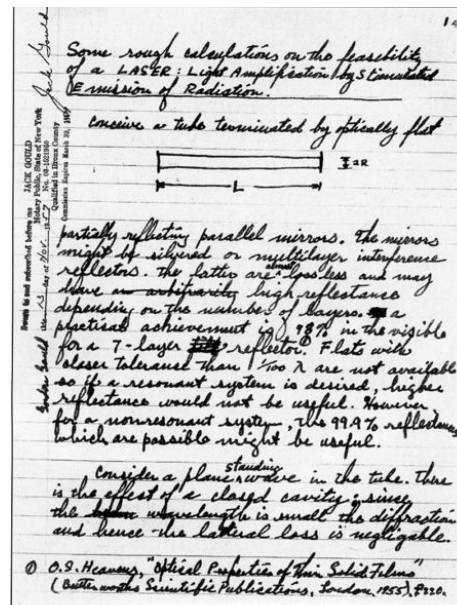 1
Some rough calculations on the feasibility
of a LASER: Light Amplification by Stimulated
Emission of Radiation.
conceive a tube terminated by optically flat
2R
L
partially reflecting parallel mirrors. The mirrors
might be silvered or multilayer interference
reflectors. The latter are almost lossless and may
have an arbitrarily high reflectance
depending on the number of layers. a
practical achievement is 98% in the visible
for a 7-layer reflector.① Flats with
closer tolerance than 1/100 λ are not available
so if a resonant system is desired, higher
reflectance would not be useful. However,
for a nonresonant system, the 99.9% reflectances
which are possible might be useful.
Consider a plane standing wave in the tube. There
is the effect of a closed cavity; since
the wavelength is small the diffraction
and hence the lateral loss is negligable.
① O.S. Heavens, "Optical Properties of Thin Solid Films"
(Butterworths Scientific Publications, London, 1955), p.220.
Jack Gould
JACK GOULD
Notary Public, State of New York
Qualified in Bronx County
Commission Expires March 30, 1959
Sworn to and subscribed before me
this 13 day of Nov. 1957
Gordon Gould